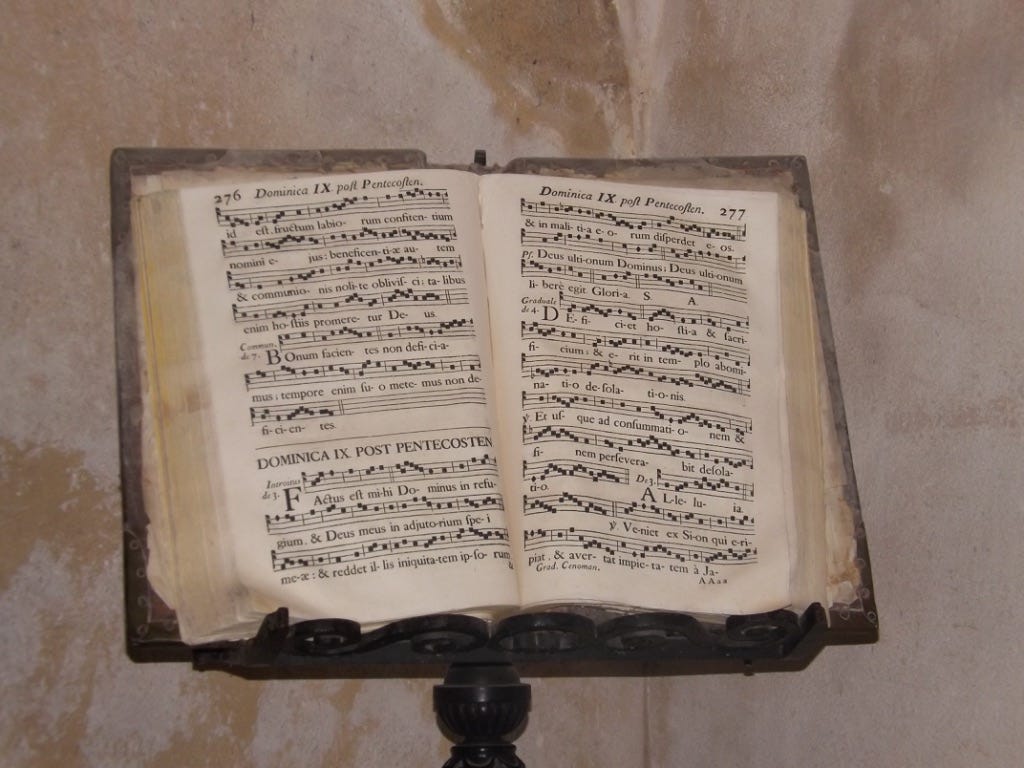 276 Dominica IX post Pentecosten.
id est fructum labio- rum confiten- tium
nomini e- jus: beneficen-ti-æ au- tem
& communio- nis noli-te oblivis- ci: ta-libus
enim ho-stiis promere- tur De- us.
Commun. de 7. BOnum facien- tes non defi-ci-a-
mus; tempore enim su-o mete- mus non de-
fi-ci-en- tes.
DOMINICA IX. POST PENTECOSTEN
Introitus de 3. FActus est mi-hi Do- minus in refu-
gium. & Deus meus in adjuto-rium spe-i
me-æ: & reddet il-lis iniquita-tem ip-so- rum
&
Dominica IX post Pentecosten. 277
& in mali-ti-a e-o- rum disperdet e- os.
Ps. Deus ulti-onum Dominus; Deus ulti-onum
li-berè egit. Glori-a. S. A.
Graduale de 4. DE-fi- ci-et ho- sti-a & sacri-
fi- cium: & e- rit in tem- plo abomi-
na- ti-o de-sola- ti-o-nis.
℣ Et us- que ad consummati-o- nem &
fi- nem persevera- bit desola-
ti-o. De 3. AL-le- lu- ia.
℣. Ve-niet ex Si-on qui e-ri-
piat. & aver- tat impie-ta-tem à Ja-
Grad. Cenoman. AAaa